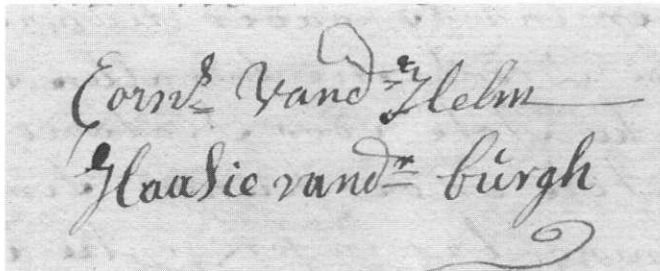 Corns Vandr Helm
Haasie vandr burgh